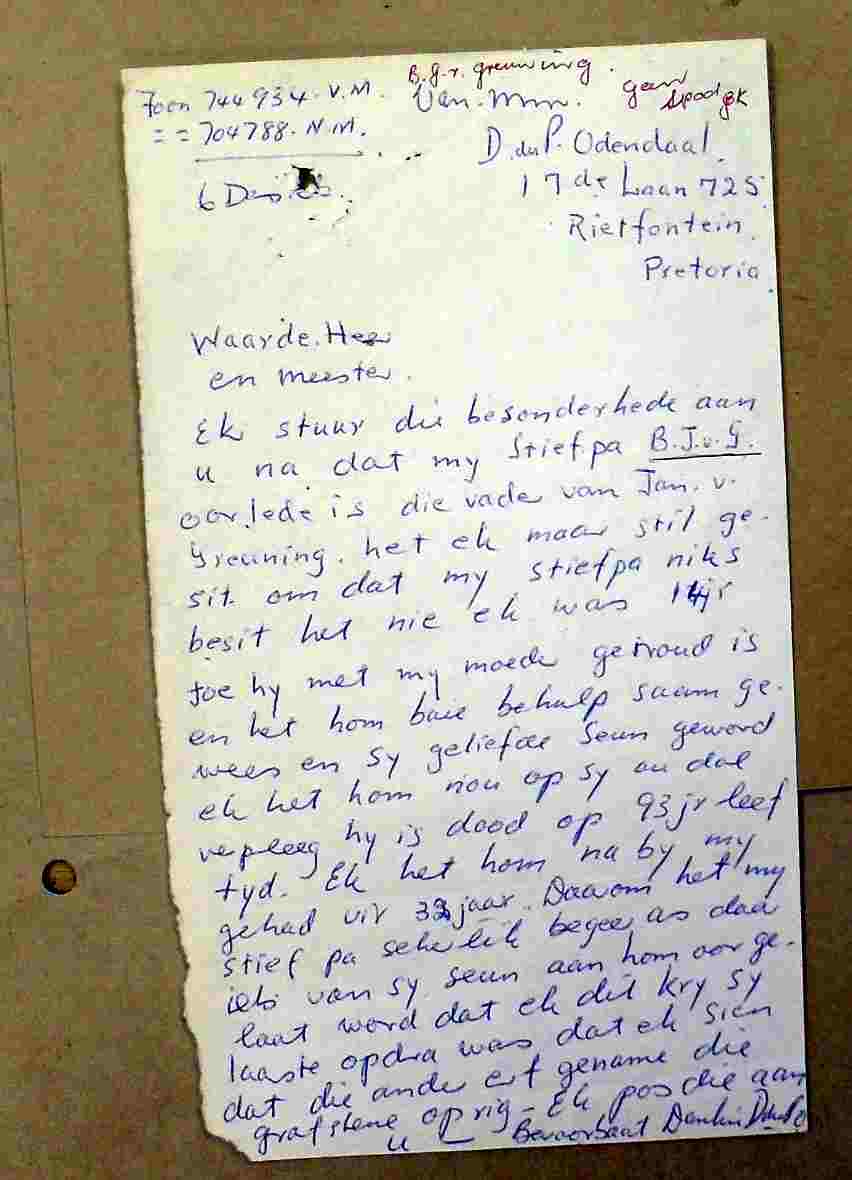 B.J.v. Greuning.
Foon 744934. V.M. Van. Mnr. geen
= = 704788. N.M. spoed
D. du P. Odendaal.
6 Des
17 de Laan 725
Rietfontein
Pretoria.
Waarde. Heer
en meester.
Ek stuur die besonderhede aan
u na dat my Stiefpa B.J.v.G.
oorlede is die vader van Jan. v.
Greuning. het ek maar stil ge-
sit om dat my stiefpa niks
besit het nie ek was 14jr
toe hy met my moeder getroud is
en het hom baie behulp saam ge-
wees en sy geliefde seun geword
ek het hom nou op sy ou dae
verpleeg hy is dood op 93jr leef
tyd. Ek het hom na by my
gehad vir 32 jaar. Daarom het my
stief pa sekerlik begeer as daar
iets van sy seun aan hom oor ge-
laat word dat ek dit kry sy
laaste opdra was dat ek sien
dat die ander erfgename die
grafstene oprig - Ek pos die aan
u Bevoorbaat Dankie D.du P.O